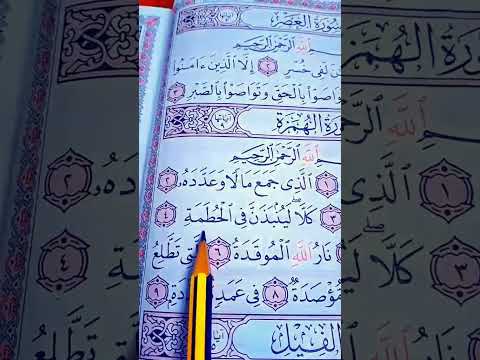 سُورَةُ العَصْرِ
ٱللَّهِ ٱلرَّحْمَٰنِ ٱلرَّحِيمِ
لَفِى خُسْرٍ ٢ إِلَّا ٱلَّذِينَ ءَامَنُوا۟
وَاصَوْا۟ بِٱلْحَقِّ وَتَوَاصَوْا۟ بِٱلصَّبْرِ ٣
سُورَةُ الهُمَزَةِ آياتها ٩
ٱللَّهِ ٱلرَّحْمَٰنِ ٱلرَّحِيمِ
١ ٱلَّذِى جَمَعَ مَالًا وَعَدَّدَهُۥ ٢
٣ كَلَّا ۖ لَيُنۢبَذَنَّ فِى ٱلْحُطَمَةِ ٤
نَارُ ٱللَّهِ ٱلْمُوقَدَةُ ٦ ٱلَّتِى تَطَّلِعُ
مُّؤْصَدَةٌ ٨ فِى عَمَدٍ ٩
الفِيلِ